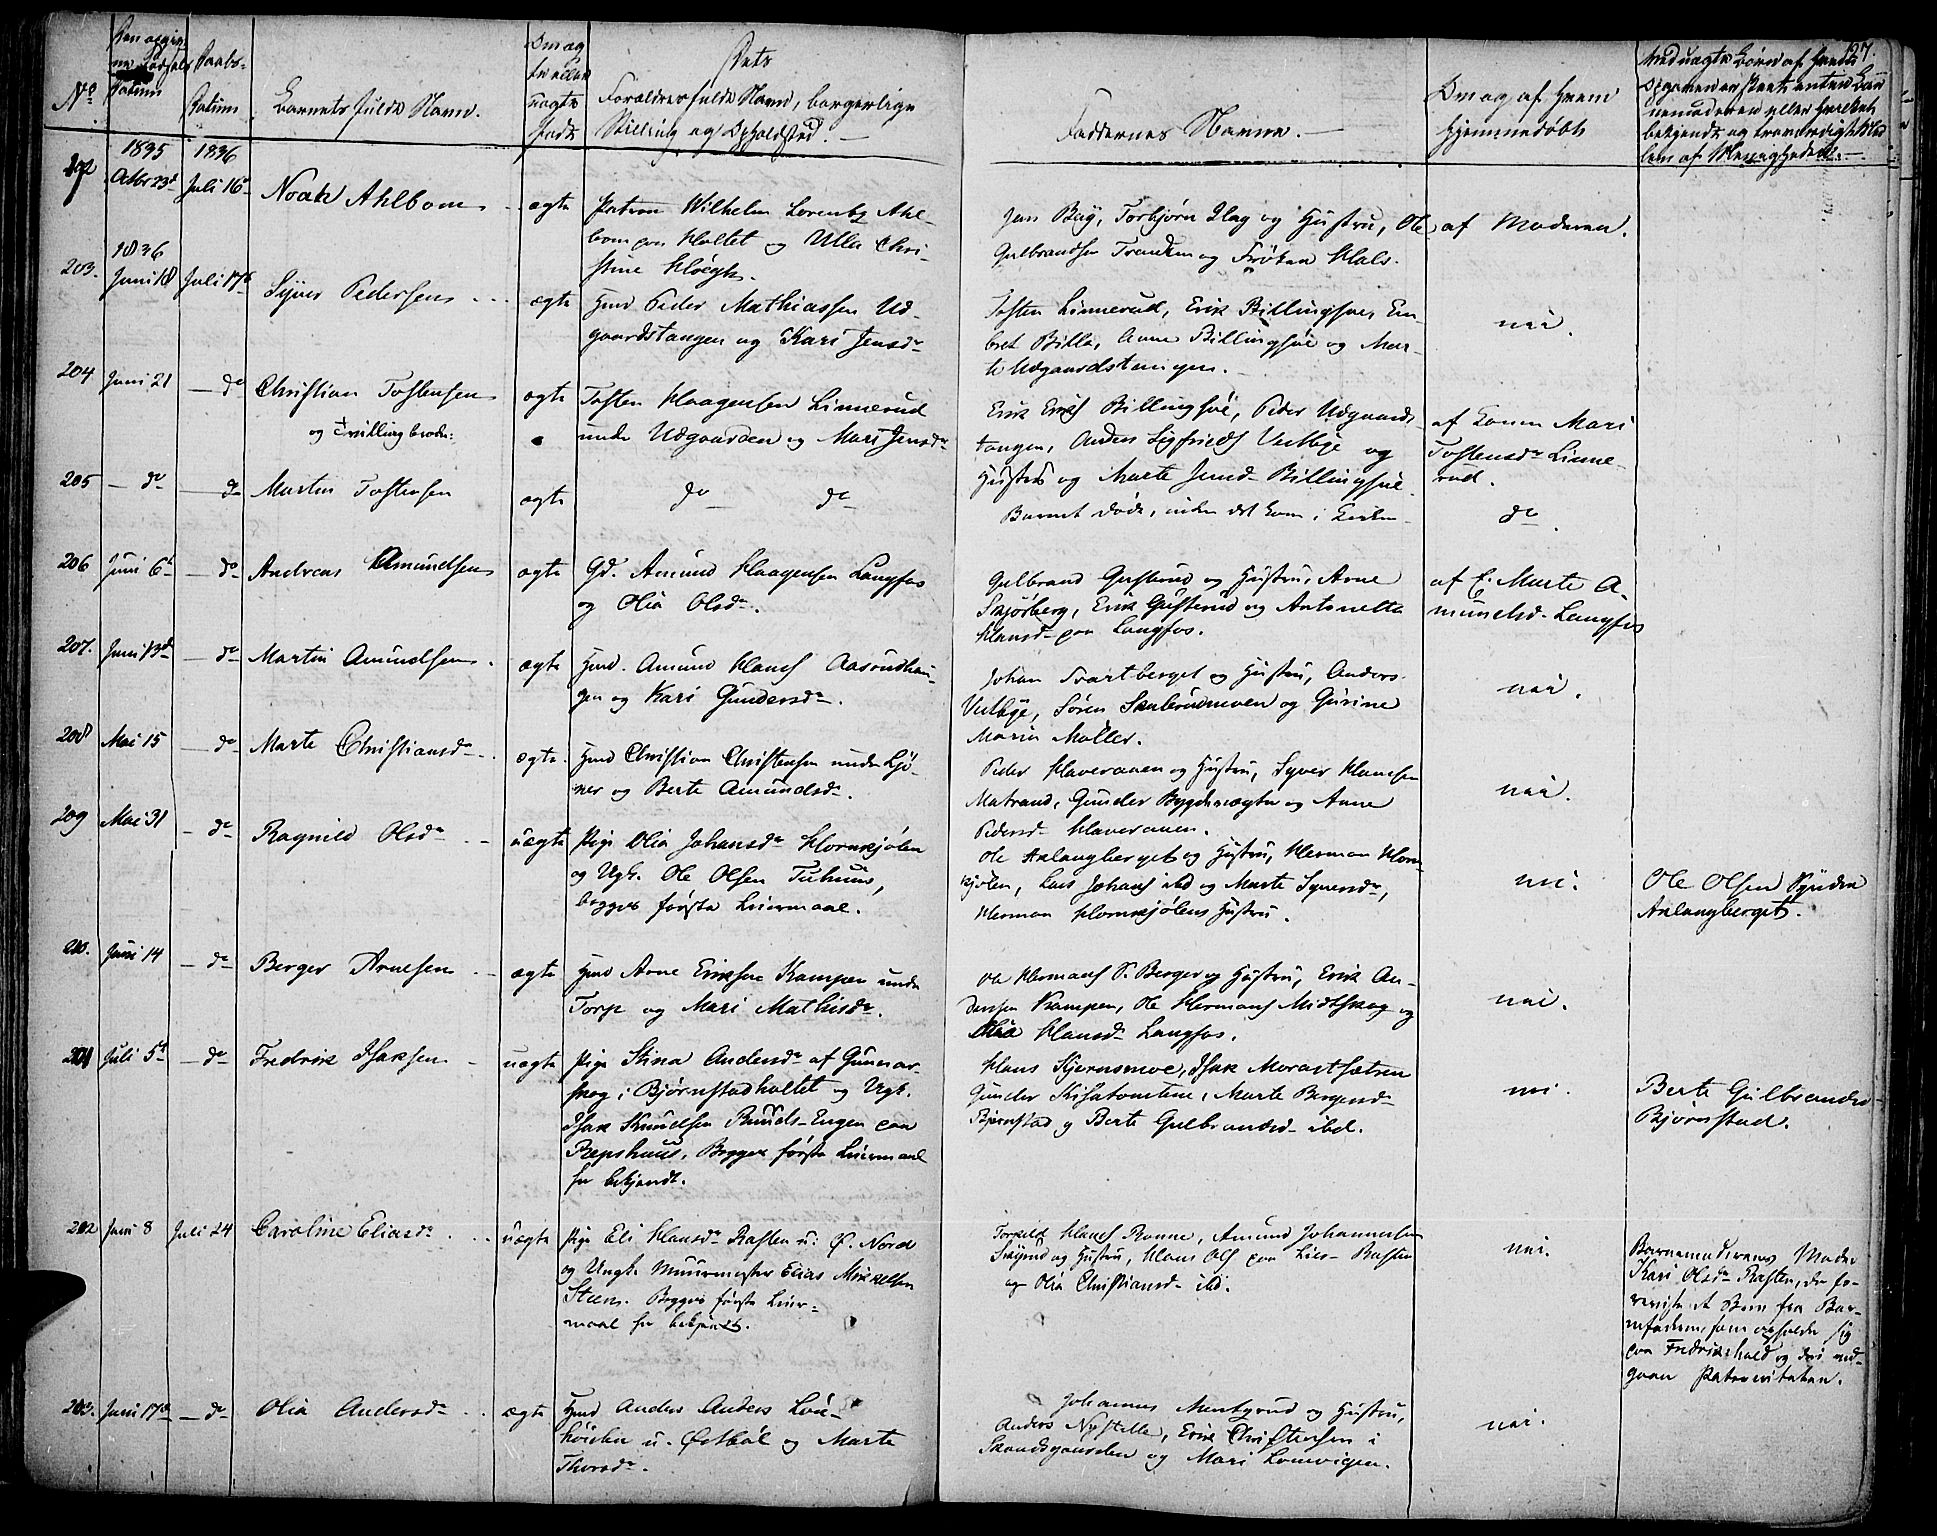 127.
No
Daabs-
Datum
Barnets fulde Navn.
Dets
Forældres fulde Navn, borgerlige
Stilling og Opholdsted.
Faddernes Navne.
Om og af hvem
hjemmedøbt
1835
1836
Octbr 23d
Juli 16d
Noak Ahlbom
ægte
Patron Wilhelm Lorentz Ahl-
bom paa Holtet og Ulla Chri-
stine Høegh.
Jens Bay, Torbjørn Hag og Hustru, Ole
Gulbrandsen Trandem og Frøken Hals.
af Moderen.
203.
1836
Juni 18
Juli 17de
Syver Pedersen
ægte
Hmd Peder Mathiassen Ud-
gaardstangen og Kari Jensdr
Tosten Linnerud, Erik Billingsøe, Em-
bret Billa, Anne Billingsøe og Mar-
te Udgaardstangen.
nei.
204
Juni 21
do
Christian Tostensen
og Tvillingbroder:
ægte
Tosten Haagensen Linnerud
under Udgaarden og Mari Jensdr
Erik Ericks Billingsøe, Peder Udgaards-
tangen, Anders Sigfrieds Vestbye og
Hustru og Marte Jensd Billingsøe.
af Konen Mari
Tostensdr Linne-
rud.
205
do
do
Martin Tostensen
ægte
do do
Barnet døde, inden det kom i Kirken
do
206
Juni 6t
do
Andreas Amundsen
ægte
Gd. Amund Haagensen Langfos
og Olia Olsdr.
Gulbrand Gusterud og Hustru, Arne
Skjøsberg, Erik Gusterud og Antonette
Hansd paa Langfos.
af E. Marte A-
mundsd Langfos
207.
Juni 13d
do
Martin Amundsen
ægte
Hmd. Amund Hansen Aasrudhau-
gen og Kari Gundersdr.
Johan Svartberget og Hustru, Anders
Vestbye, Søren Skulerudmoen og Gurine
Maria Møller.
nei.
208
Mai 15
do
Marte Christiansdr
ægte.
Hmd Christian Christensen under Sjø-
ner og Berte Amundsdr.
Peder Haveraaen og Hustru, Syver Hansen
Matrand, Gunder Bygdemægter og Anne
Pedersd Haveraaen.
nei.
209
Mai 31
do
Ragnild Olsdr
uægte
Pige Olia Johansdr Hornkjølen
og Ugk. Ole Olsen Tuhuus,
begges første Leiermaal.
Ole Aslangberget og Hustru, Herman Horn-
kjølen, Lars Johans ibd og Marte Syversdr,
Herman Hornkjølens Hustru.
nei.
Ole Olsen Søndre
Aslangberget.
Juni 14
do
Berger Arnesen
ægte
Hmd Arne Eriksen Kampen under
Torp og Mari Mathisdr.
Ole Hermans S. Berger og Hustru, Erik An-
dersen Kampen, Ole Hermans Midtskog og
Olia Hansdr Langfos.
nei.
201
Juli 5t
do
Fredrik Isaksen
uægte
Pige Stina Andersdr af Gunnar-
skog i Bjørnstadholtet og Ugk.
Isak Knudsen Ruuds-Engen paa
Repshuus. Begges første Leiermaal
saa bekjendt.
Hans Kjernsmoe, Isak Morastsætren
Gunder Kisatomtene, Marte Bergersd
Bjørnstad og Berte Gulbrandsd ibd.
nei.
Berte Gulbrandsd
Bjørnstad.
202
Juni 8
Juli 24
Caroline Eliasdr
uægte
Pige Eli Hansdr Rasten u. Ø. Nord
og Ungk. Muurmester Elias Mikkelsen
Steen. Begges første Leier-
maal saa bekjendt.
Torkild Hans Ronne, Amund Johannesen
Skyrud og Hustru, Hans Ols paa Lies- Rasten
og Olia Christiansd ibd.
nei.
Barnemoderens Moder
Kari Olsdr Rasten, der fo-
reviste et Brev fra Bar-
nefaderen, som opholder sig
paa Fredrikshald og deri ved-
gaaer Paterniteten.
203.
Juni 17d
do
Olia Andersdr
ægte
Hmd Anders Anders Løv-
høiden u. Østbøl og Marte
Thorsdr.
Johannes Mentzrud og Hustru,
Anders Nystelle, Erik Christensen i
Strandsgaarden og Mari Lomvigen.
nei.